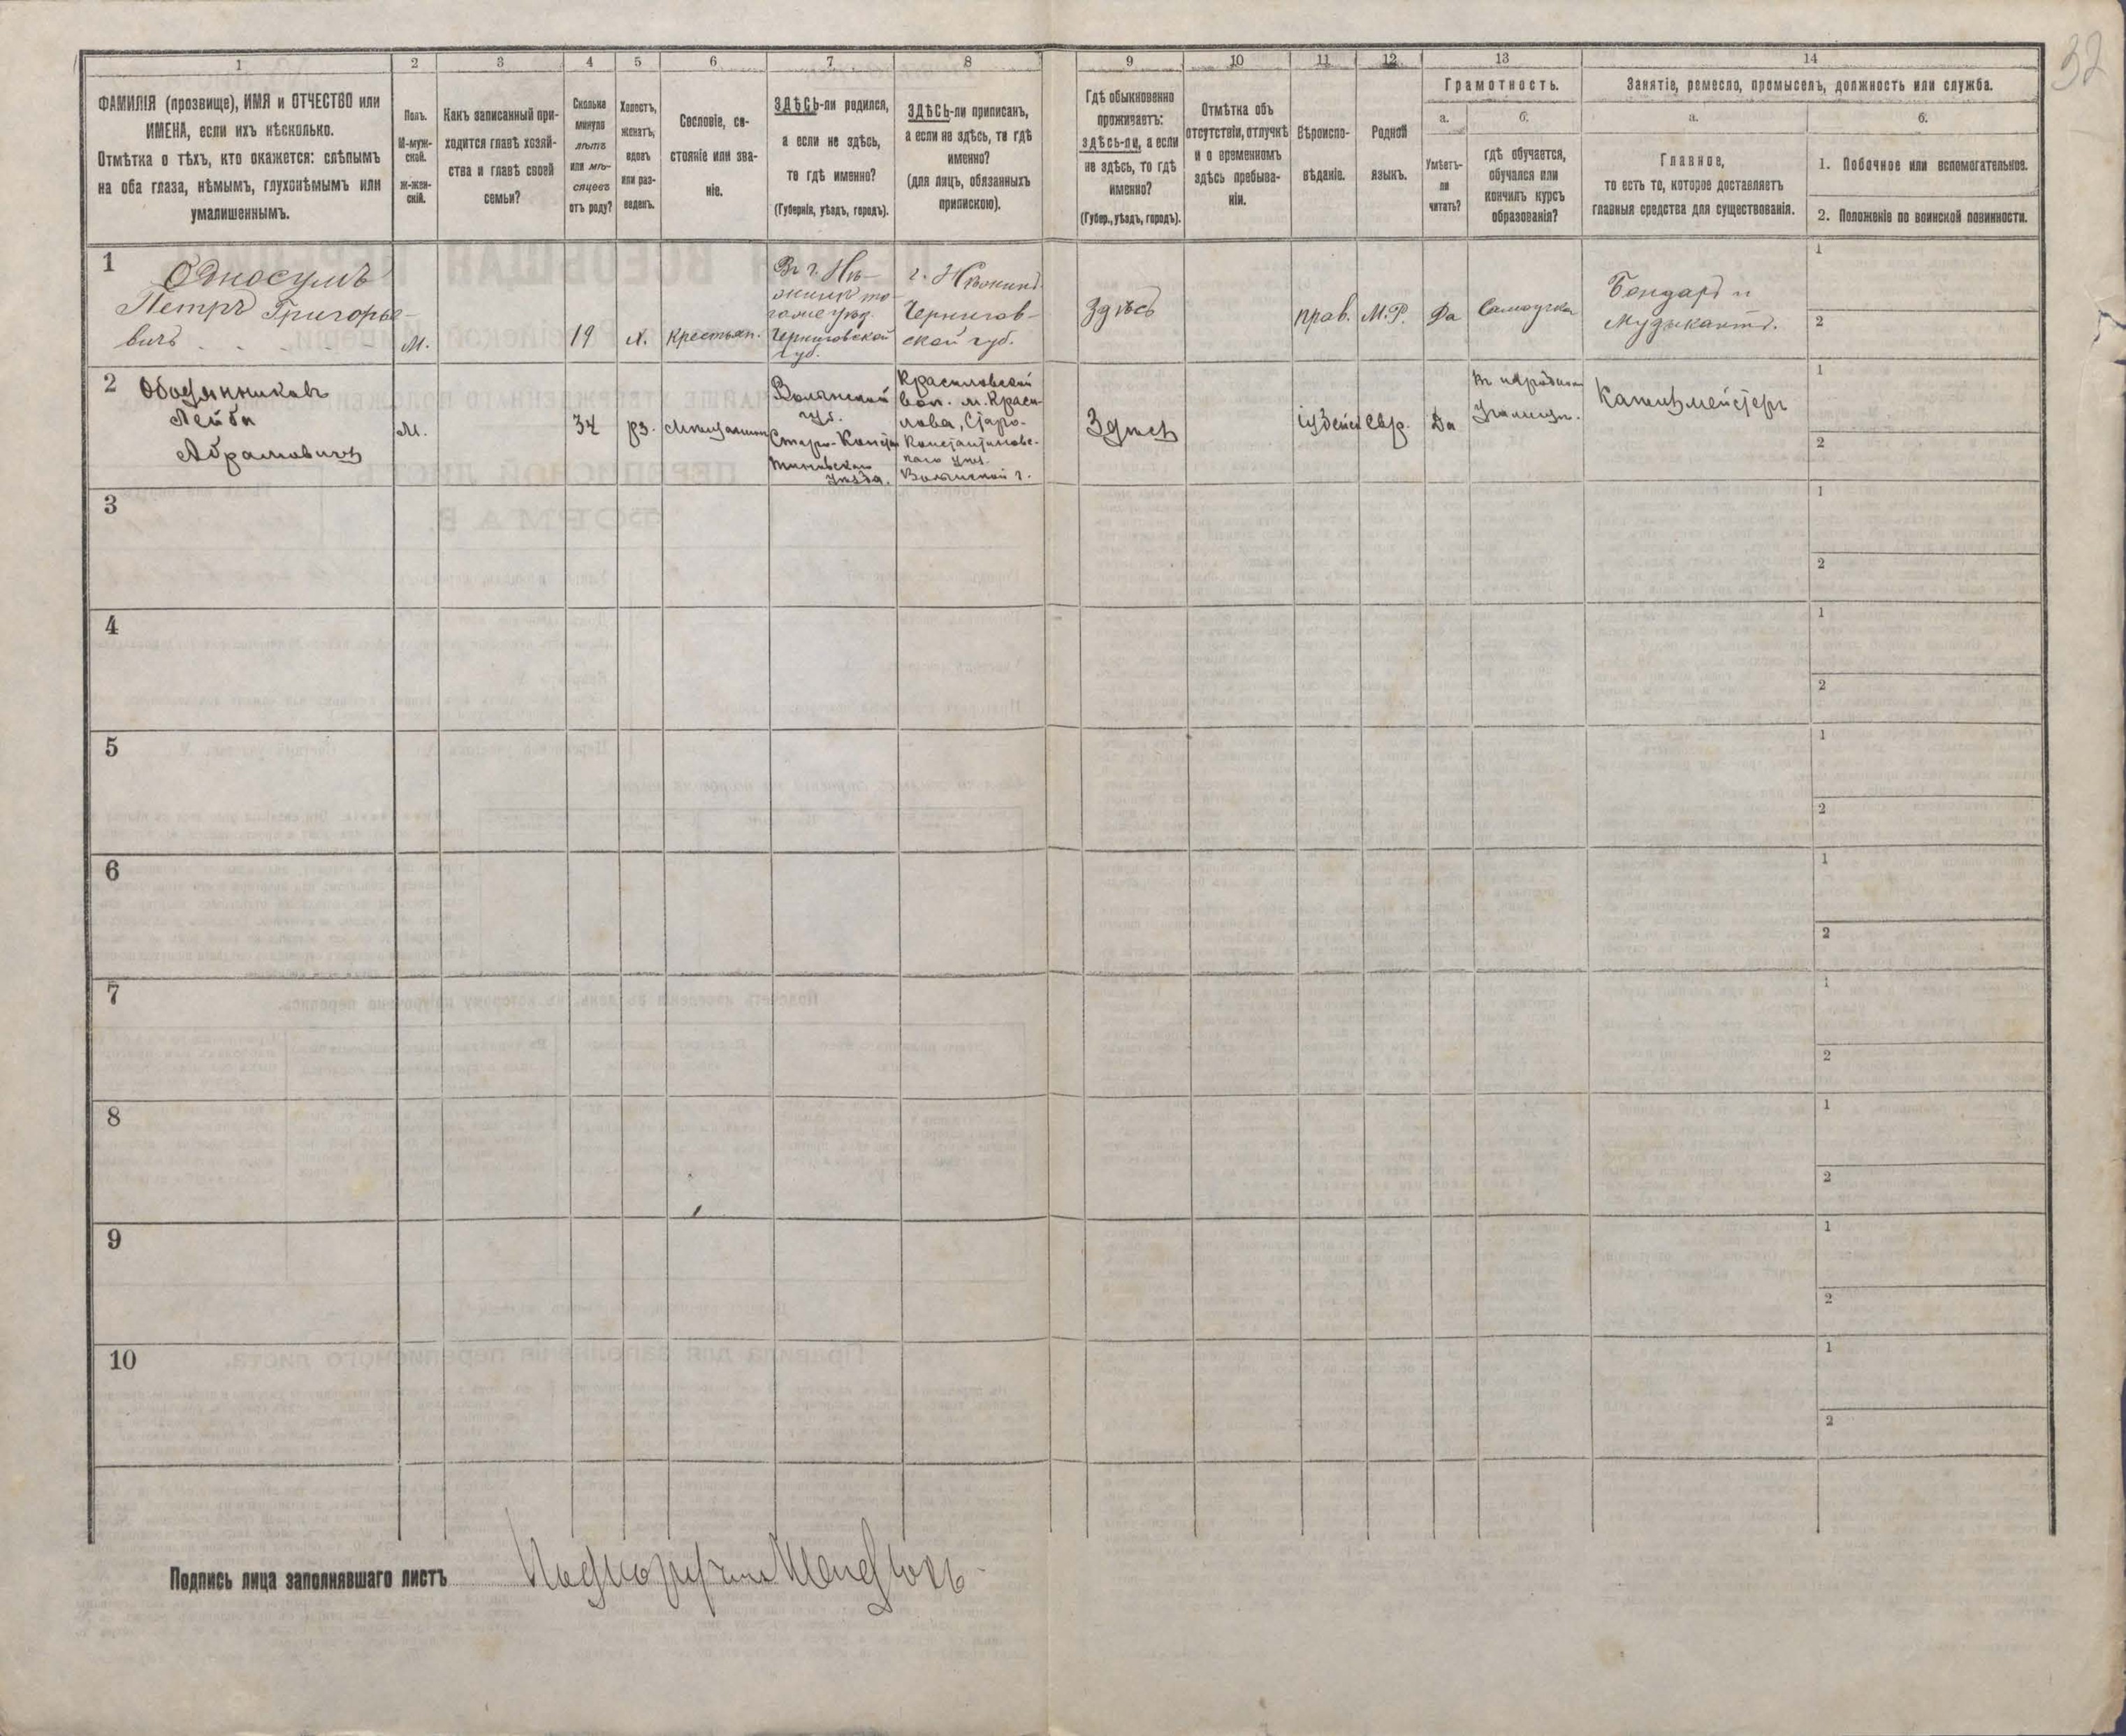 32
1
2
3
4
5
6
7
8
9
10
11
12
13
14
ФАМИЛІЯ (прозвище), ИМЯ и ОТЧЕСТВО или
ИМЕНА, если ихъ нѣсколько.
Отмѣтка о тѣхъ, кто окажется: слѣпымъ
на оба глаза, нѣмымъ, глухонѣмымъ или
умалишеннымъ.
Полъ.
М-муж-
ской.
ж-жен-
скій.
Какъ записанный при-
ходится главѣ хозяй-
ства и главѣ своей
семьи?
Сколько
минуло
лѣтъ
или мѣ-
сяцевъ
отъ роду?
Холостъ,
женатъ,
вдовъ
или раз-
веденъ.
Сословіе, со-
стояніе или зва-
ніе.
ЗДѢСЬ-ли родился,
а если не здѣсь,
то гдѣ именно?
(Губернія, уѣздъ, городъ).
ЗДѢСЬ-ли приписанъ,
а если не здѣсь, то гдѣ
именно?
(для лицъ, обязанныхъ
припискою).
Гдѣ обыкновенно
проживаетъ:
здѣсь-ли, а если
не здѣсь, то гдѣ
именно?
(Губер., уѣздъ, городъ).
Отмѣтка объ
отсутствіи, отлучкѣ
и о временномъ
здѣсь пребыва-
ніи.
Вѣроиспо-
вѣданіе.
Родной
языкъ.
Грамотность.
а.
Умѣетъ-
ли
читать?
б.
гдѣ обучается,
обучался или
кончилъ курсъ
образованія?
Занятіе, ремесло, промыселъ, должность или служба.
а.
Главное,
то есть то, которое доставляетъ
главныя средства для существованія.
б.
1. Побочное или вспомогательное.
2. Положеніе по воинской повинности.
1
Односумъ
Петръ Григорье-
вичъ
М.
19
х.
крестьян.
Въ г. Нѣ-
Черниговской
губ.
г. Нѣжинъ
Чернигов-
ской губ.
Здѣсь
прав.
М.Р.
Да
Самоучка
Бондарь и
музыкантъ.
1
2
2
Лейба
Абрамовичъ
М.
34
рз.
мѣщанин
Волынской
губ.
Старо-Конста
тиновскаго
уѣзда.
Красиловской
вол. м. Краси-
лова, Старо-
Константиновс-
каго уѣз.
Волынской г.
Здѣсь
іудейс
Евр.
Да
въ народном
училищѣ.
Капельмейстеръ
1
2
3
1
2
4
1
2
5
1
2
6
1
2
7
1
2
8
1
2
9
1
2
10
1
2
Подпись лица заполнявшаго листъ